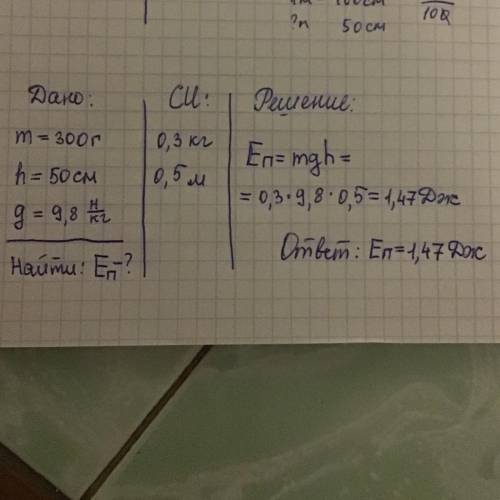 100см
?п 50см
100
Дано:
m = 300г
h = 50см
g = 9,8 н/кг
Найти: Eп-?
СИ:
0,3 кг
0,5 м
Решение:
Eп = mgh =
= 0,3 · 9,8 · 0,5 = 1,47 Дж
Ответ: Eп = 1,47 Дж